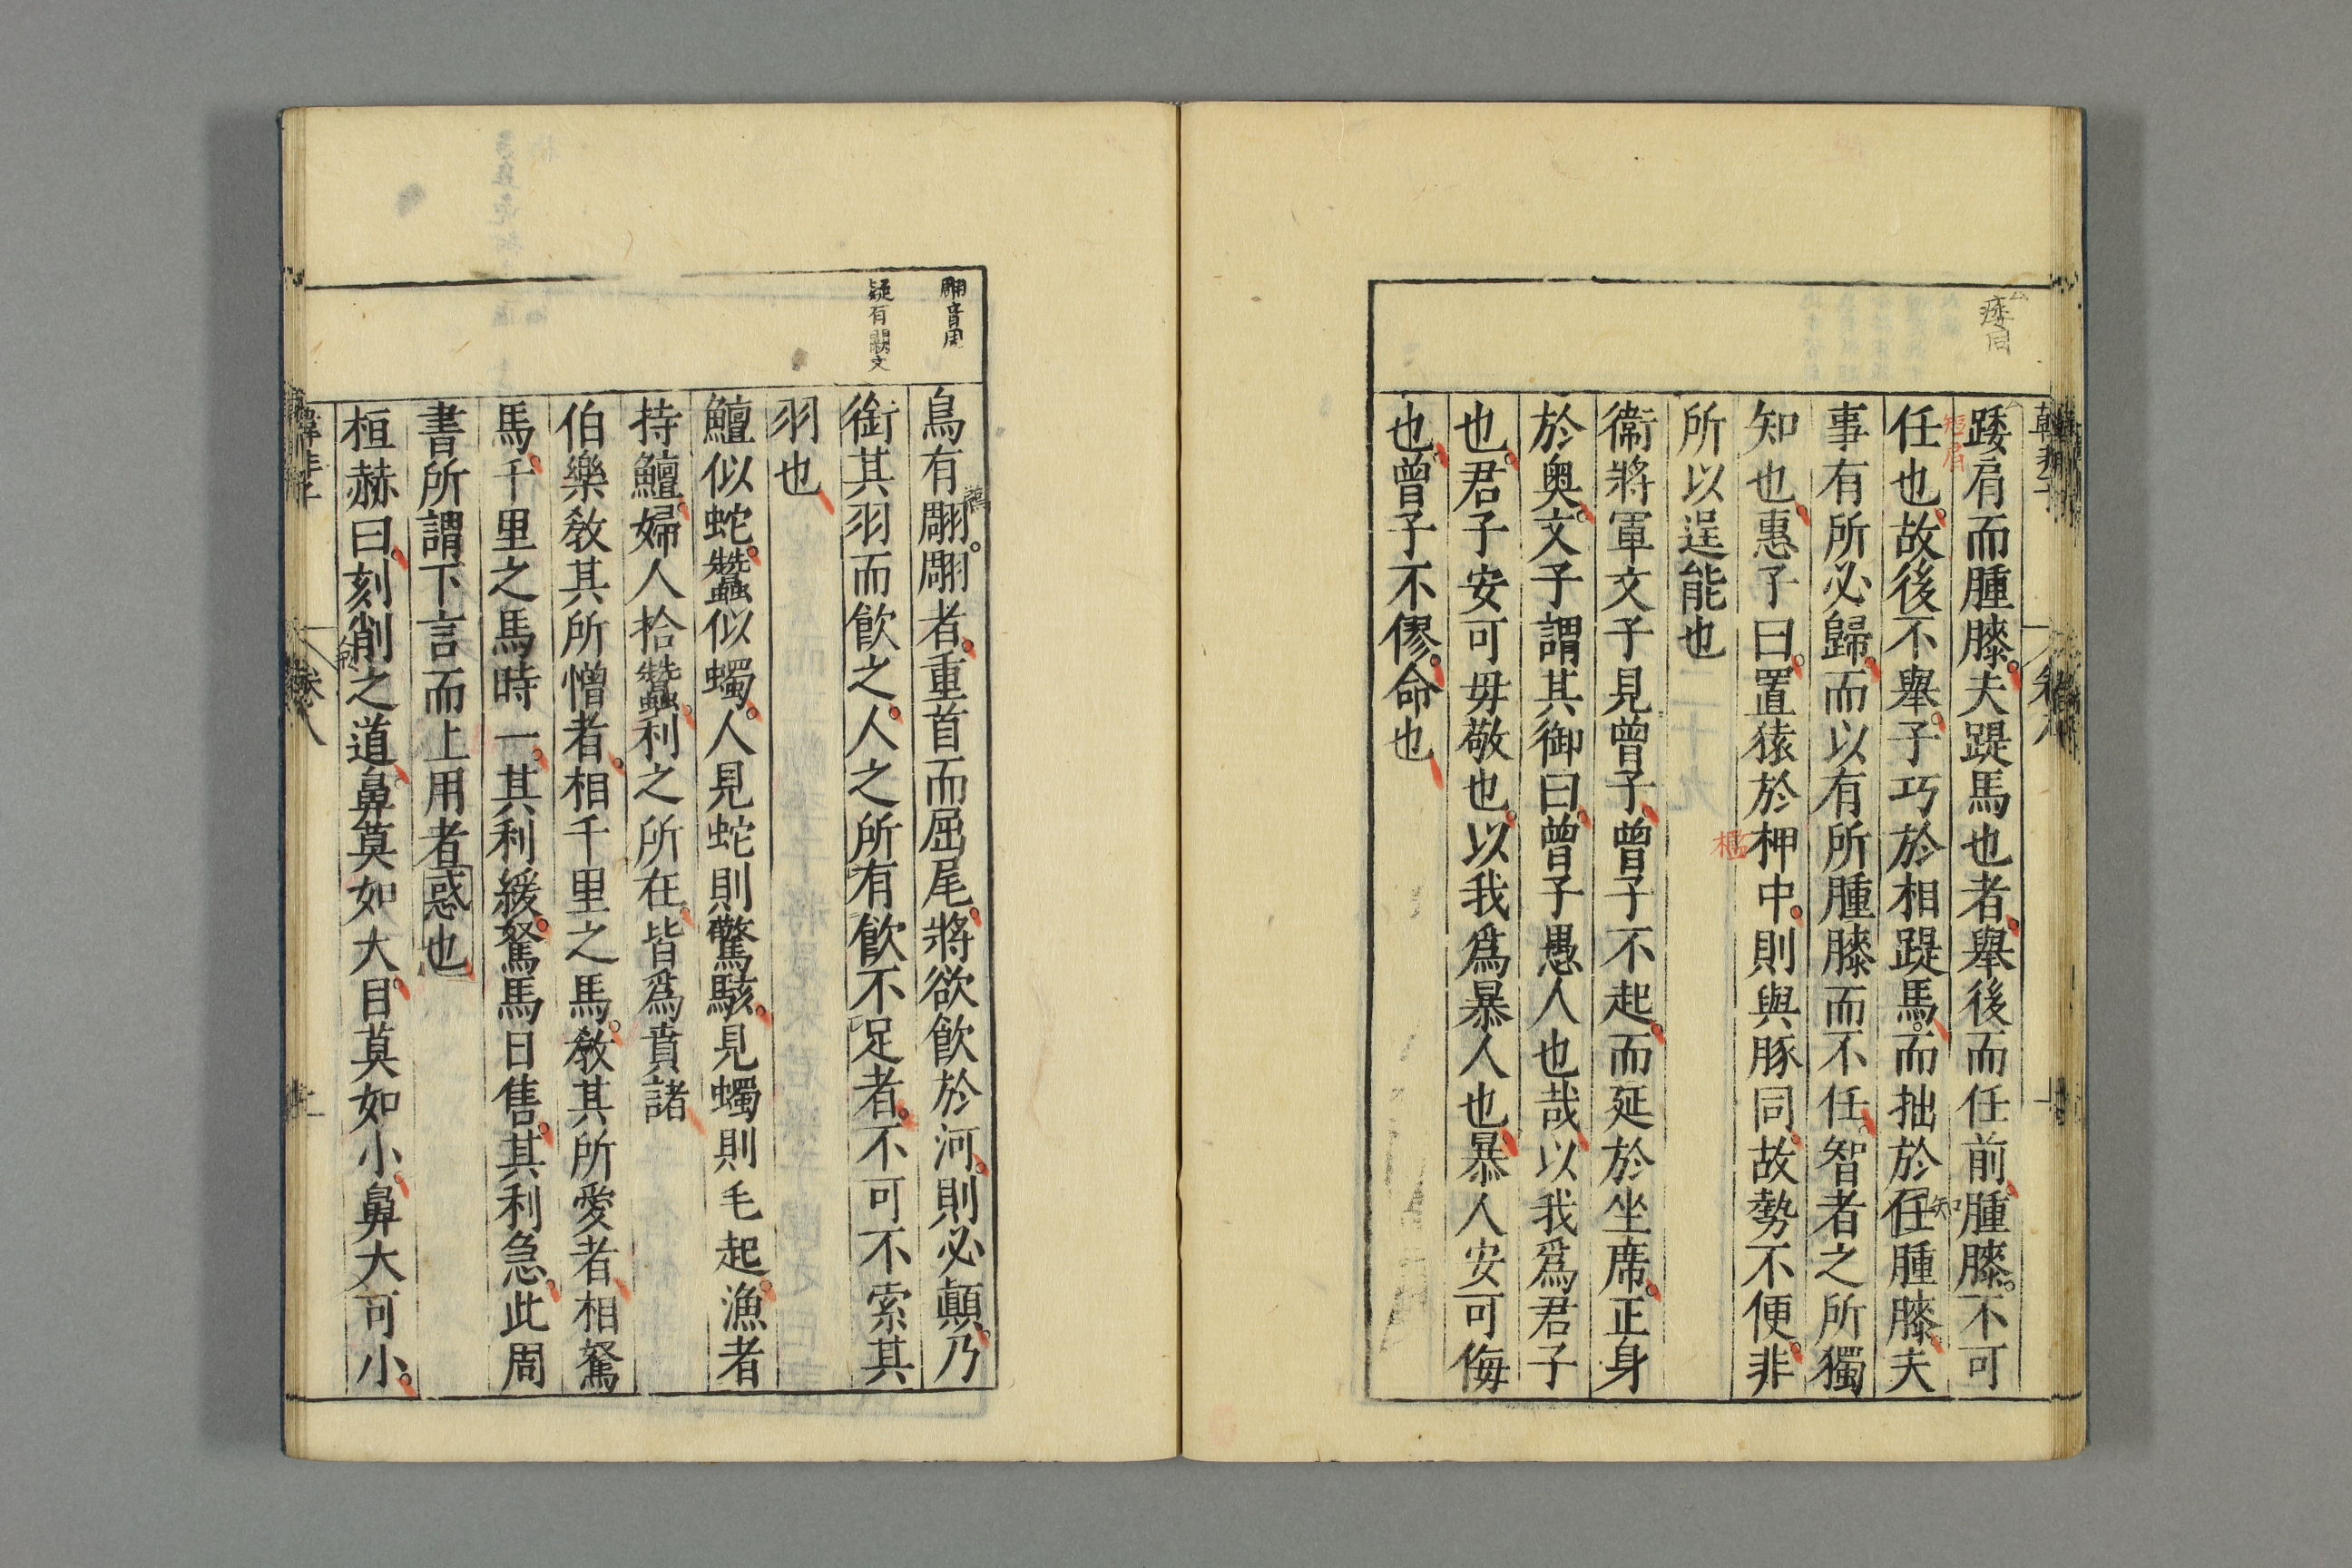 痿同
踒肩而腫膝夫踶馬也者舉後而任前腫膝不可
任也故後不舉子巧於相踶馬而拙於任腫膝夫
知
事有所必歸而以有所腫膝而不任智者之所獨
知也惠子曰置猿於柙中則與豚同故勢不便非
檻
所以逞能也
衞將軍文子見曾子曾子不起而延於坐席正身
於奥文子謂其御曰曾子愚人也哉以我爲君子
也君子安可毋敬也以我爲暴人也暴人安可侮
也曾子不僇命也
翢音周
疑有闕文
鳥有翢翢者重首而屈尾將欲飮於河則必顚乃
銜其羽而飮之人之所有飮不足者不可不索其
羽也
鱣似蛇蠶似蠋人見蛇則驚駭見蠋則毛起漁者
持鱣婦人拾蠶利之所在皆爲賁諸
伯樂敎其所憎者相千里之馬敎其所愛者相駑
馬千里之馬時一其利緩駑馬日售其利急此周
書所謂下言而上用者惑也
桓赫曰刻削之道鼻莫如大目莫如小鼻大可小
韓非子
卷八